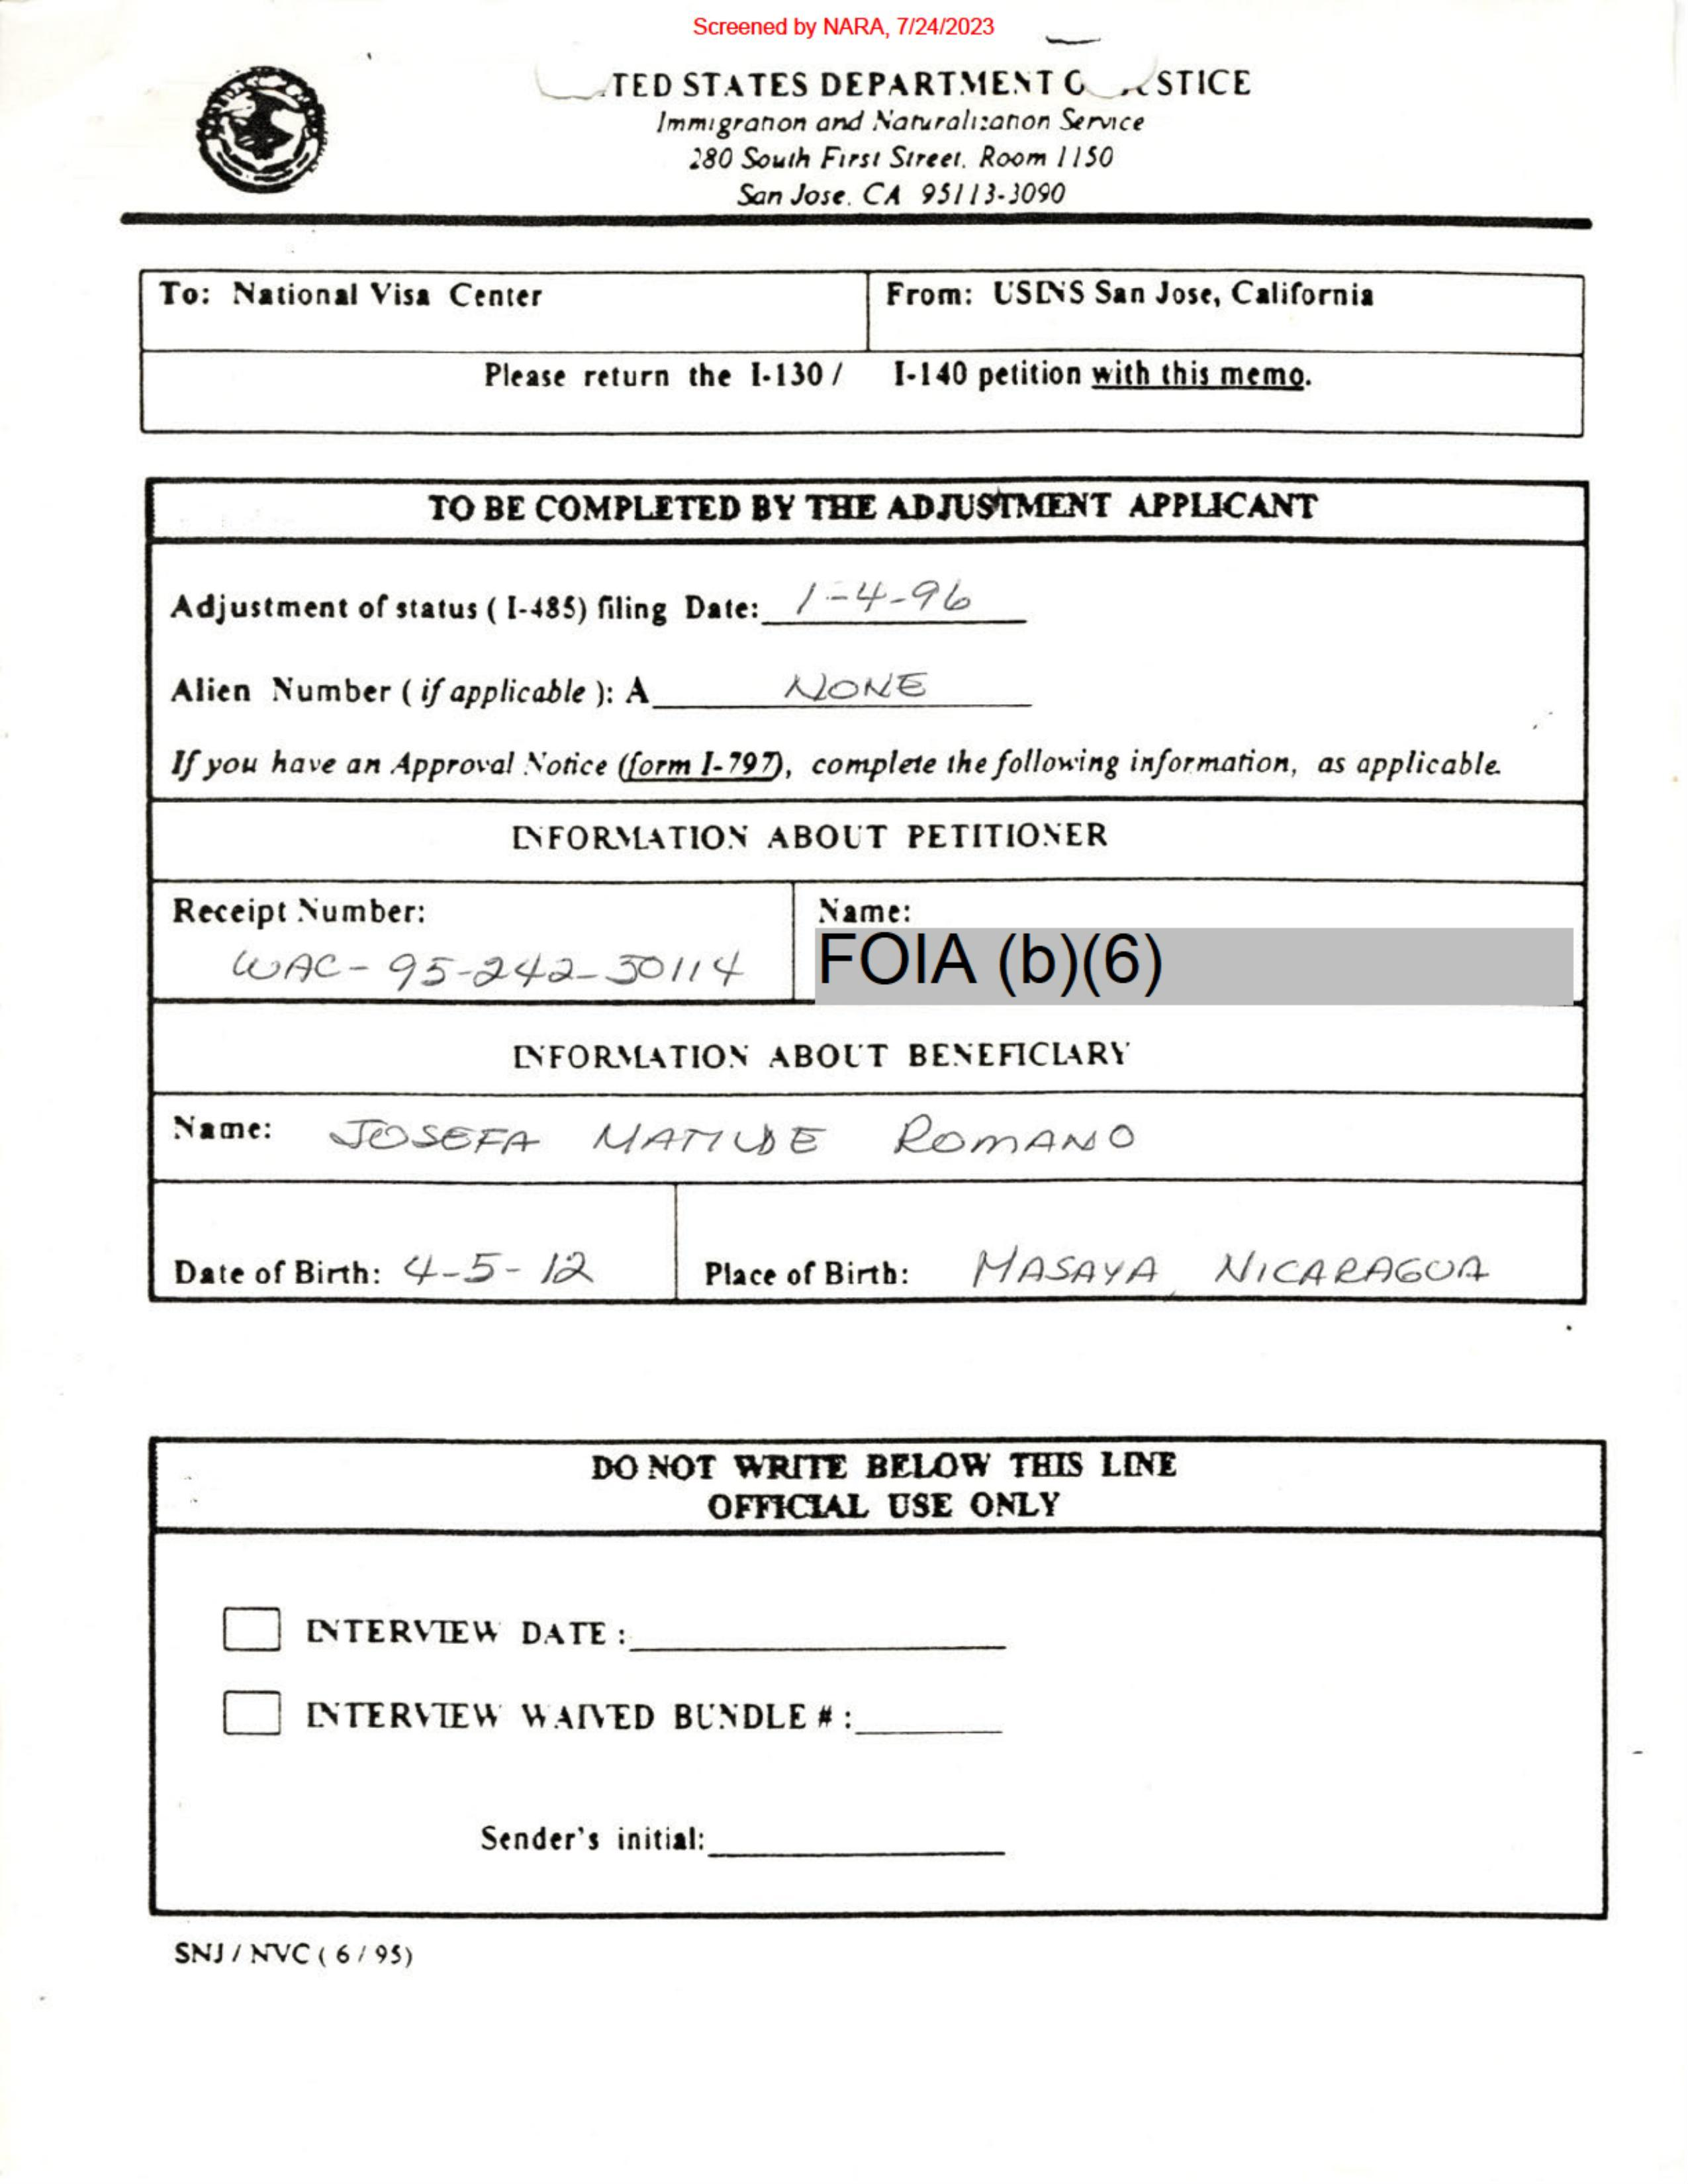 Screened by NARA, 7/24/2023
TED STATES DEPARTMENT O STICE
Immigration and Naturalization Service
280 South First Street, Room 1150
San Jose, CA 95113-3090
To: National Visa Center
From: USINS San Jose, California
Please return the I-130 / I-140 petition with this memo.
TO BE COMPLETED BY THE ADJUSTMENT APPLICANT
Adjustment of status ( I-485) filing Date: 1-4-96
Alien Number ( if applicable ): A NONE
If you have an Approval Notice (form I-797), complete the following information, as applicable.
INFORMATION ABOUT PETITIONER
Receipt Number:
WAC-95-242-50114
Name:
FOIA (b)(6)
INFORMATION ABOUT BENEFICIARY
Name: JOSEFA MATILDE ROMANO
Date of Birth: 4-5-12
Place of Birth: MASAYA, NICARAGUA
DO NOT WRITE BELOW THIS LINE
OFFICIAL USE ONLY
INTERVIEW DATE :
INTERVIEW WAIVED BUNDLE # :
Sender's initial:
SNJ / NVC ( 6 / 95)